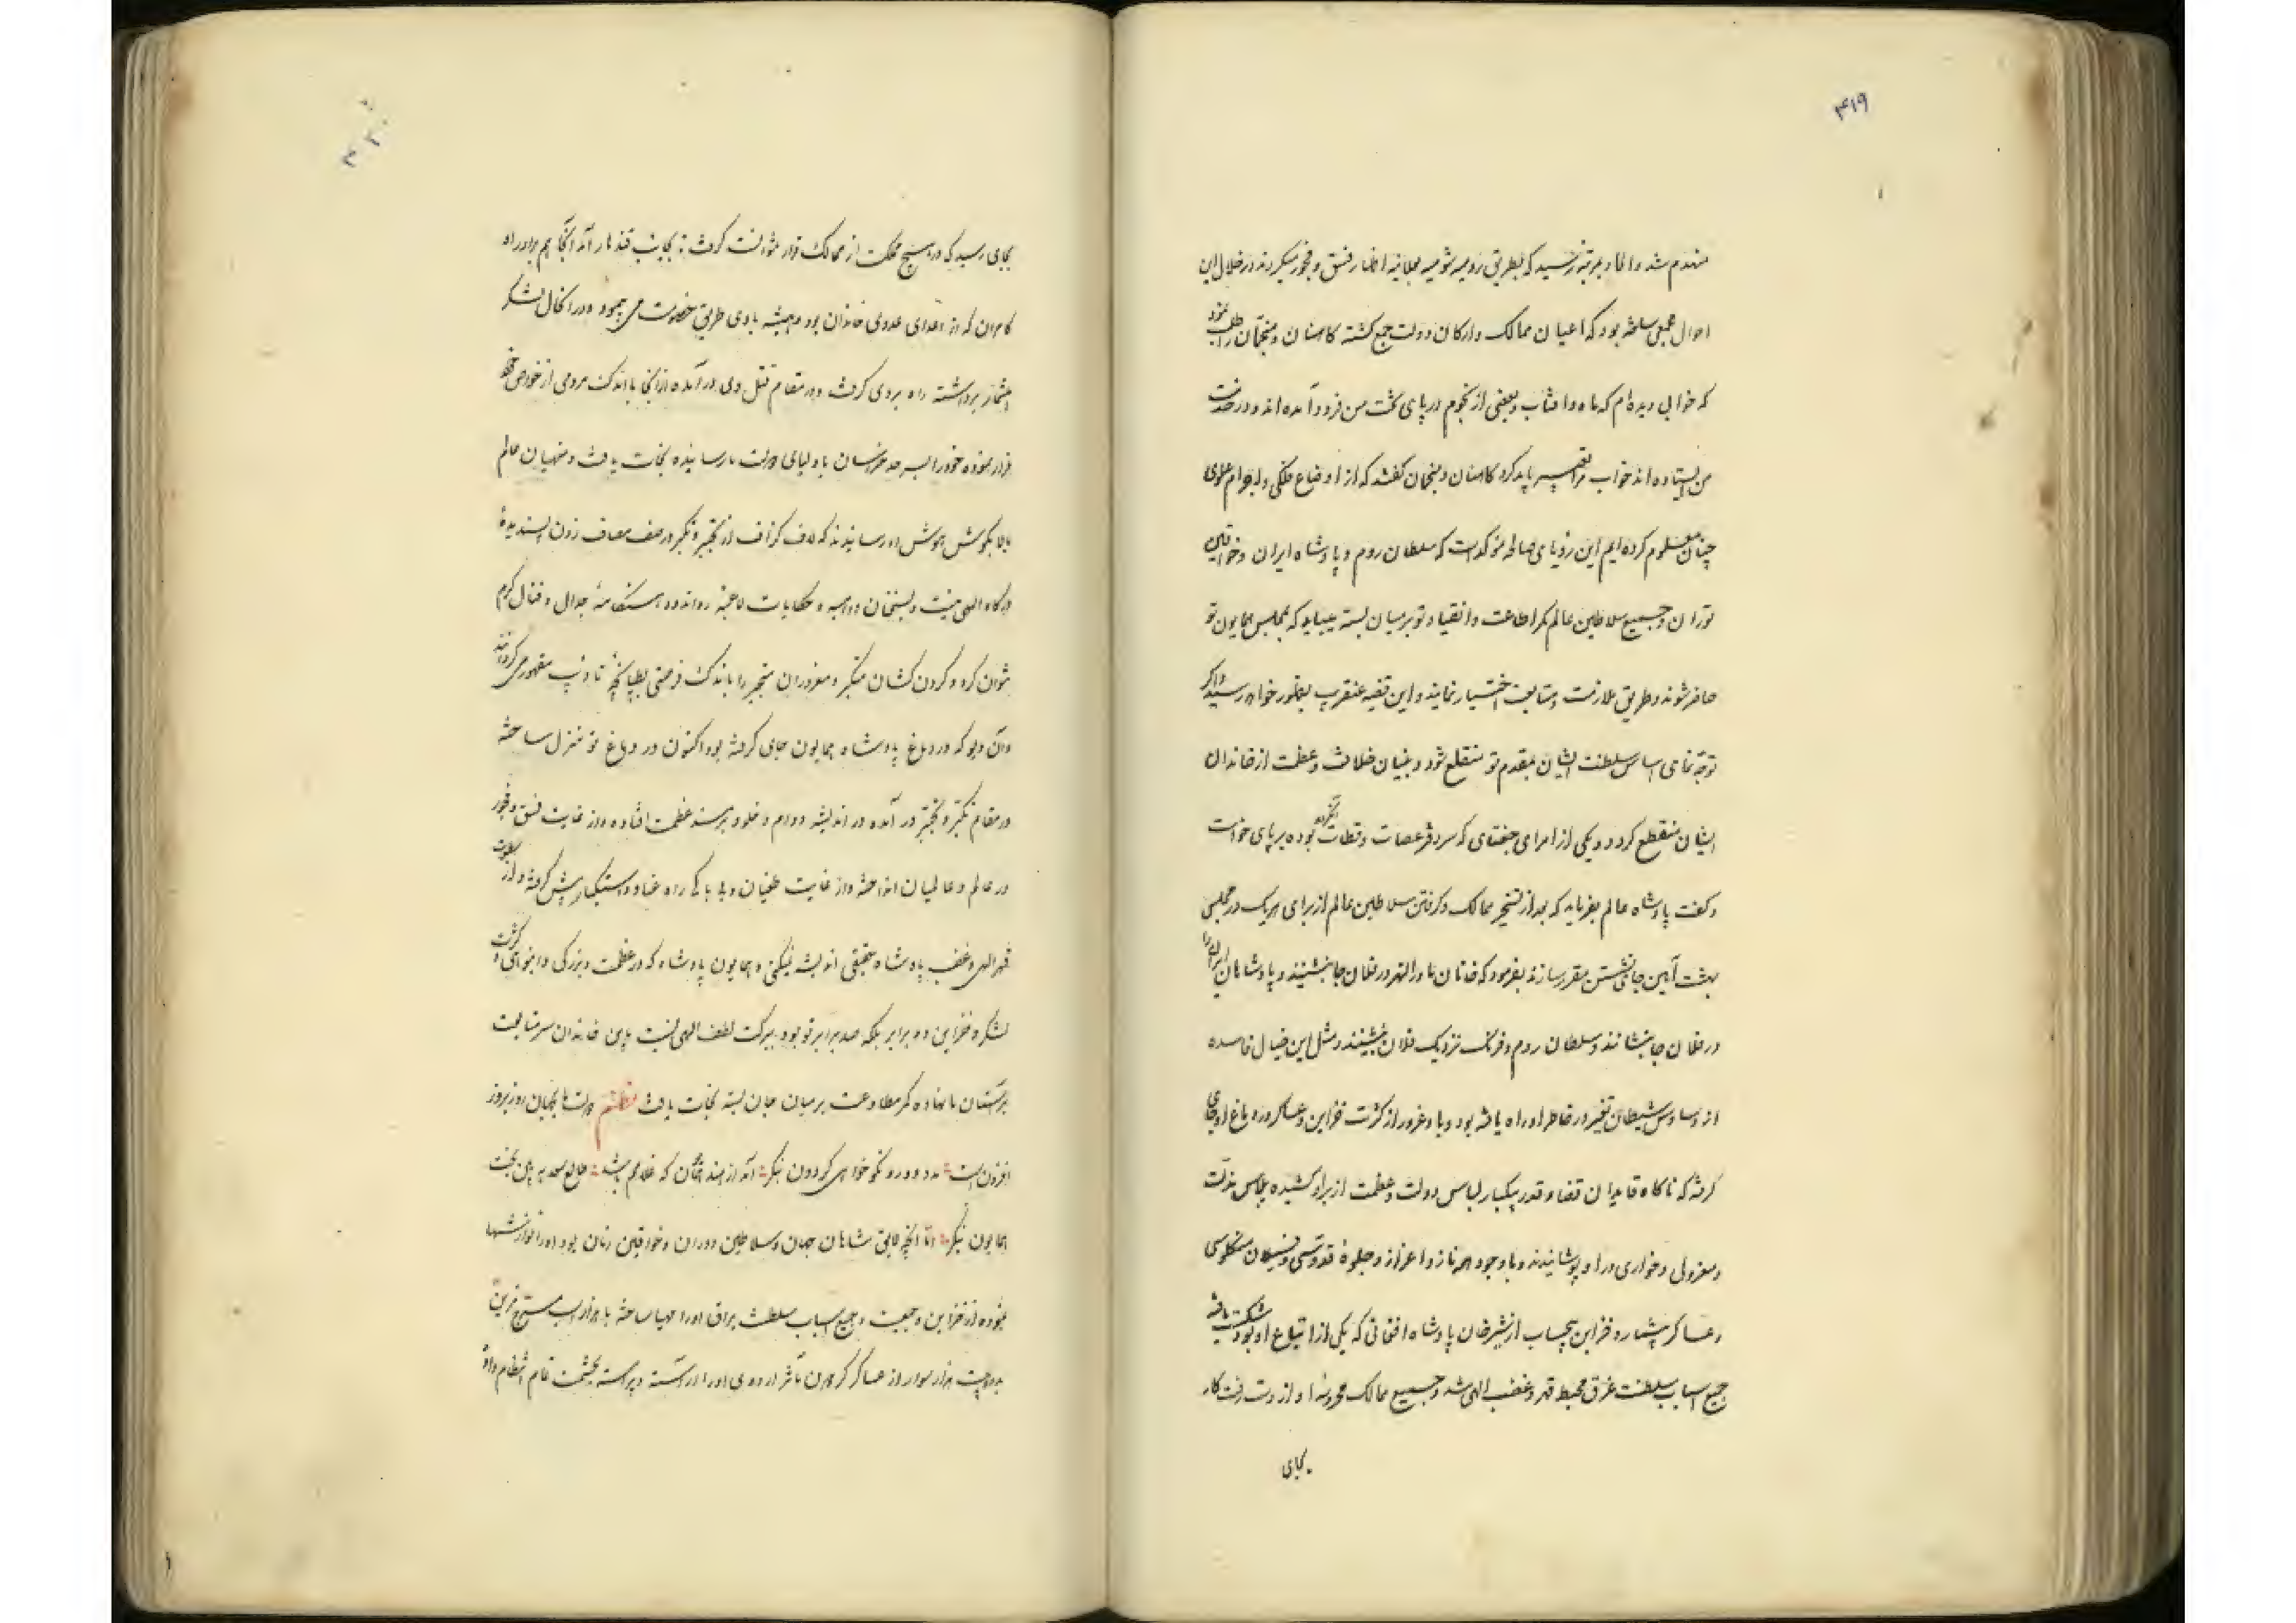 ۴۱۹
منعدم شد و الحاد بمرتبهٔ رسید که بطریق رومیه شومیه بعلانیه اظهار فسق و فجور میکردند در خلال این
احوال مجلسی ساخته بود که اعیان ممالک و ارکان دولت جمع کشته کاهنان و منجمان را طلب نمود
که خوابی دیده‌ام که ماه و آفتاب و بعضی از نجوم در پای تخت من فرود آمده‌اند و در خدمت
من ایستاده‌اند خواب مرا تعبیر باید کرد کاهنان و منجمان کفتند که از اوضاع فلکی و اجرام علوی
چنان معلوم کرده‌ایم این رؤیای صالحه مؤکد است که سلطان روم و پادشاه ایران و خواقین
توران و جمیع سلاطین عالم کمر اطاعت و انقیاد تو بر میان بسته میباید که بمجلس همایون تو
حاضر شوند و طریق ملازمت و متابعت اختیار نمایند و این قضیه عنقریب بظهور خواهد رسید و اکر
توجه نمایی اساس سلطنت ایشان بمقدم تو منقلع شود و بنیان خلافت و عظمت از خاندان
ایشان منقطع کردد و یکی از امرای جغتای که سر دفتر عصات و قطات بود بر پای خواست
و کفت پادشاه عالم بفرماید که بعد از تسخیر ممالک و کرفتن سلاطین عالم از برای هر یک در مجلس
بهشت آیین جای نشستن مقرر سازند بفرمود که خانان ماوراالنهر در فلان جا بنشینند و پادشاهان ایران را
در فلان جا بنشانند و سلطان روم و فرنک نزدیک فلان بنشینند و مثل این خیال فاسده
از وساوس شیطان تغیر در خاطر او راه یافته بود و باد غرور از کثرت خزاین و عساکر در دماغ او جای
کرفته که ناکاه قایدان قضا و قدر بیکبار لباس دولت و عظمت از بر او کشیده پلاس مذلت
و معزولی و خواری در او پوشانیدند و با وجود همه ناز و اعزاز و جلوهٔ
و عساکر بیشمار و خزاین بیحساب از شیرخان پادشاه افغانی که یکی از اتباع او بود شکست یافته
جمیع اسباب سلطنت غرق محیط قهر و غضب الهی شد و جمیع ممالک محروسهٔ او از دست رفت کار
بجای
بجای رسید که در هیچ مملکت از ممالک قرار نتوانست کرفت بجانب قندهار آمد آنجا هم برادر او
کامران که از اعدای عدوی خاندان بود همیشه با وی طریق خصومت می‌پیمود در آن حال لشکر
بیشمار برداشته راه بر وی کرفت و در مقام قتل وی در آمده از آنجا با اندک مردمی از خواص خود
فرار نموده خود را بسرحد خراسان باولیای دولت ما رسانیده نجات یافت و منهیان عالم
بالا بکوش هوش او رسانیدند که لاف کزاف از تجبر و تکبر در صف مصاف زدن پسندیدهٔ
درکاه الهی نیست و بسخنان واهیه و حکایات هنکامهٔ جدال و قتال کرم
نتوان کرد و کردن‌کشان متکبر و مغروران متجبر را باندک فرصتی بطپانچهٔ تأدیب مقهور می‌کردانند
و آن دیو که در دماغ پادشاه همایون جای کرفته بود اکنون در دماغ تو منزل ساخته
در مقام تکبر و تجبر در آمده در اندیشه دوام و خلود بر مسند عظمت افتاده و از غایت فسق و فجور
در عالم و عالمیان انداخته و از غایت طغیان و بی‌باکی راه عناد و استکبار پیش کرفته و از سطوت
قهر الهی و غضب پادشاه حقیقی اندیشه نمیکنی و همایون پادشاه که در عظمت و بزرکی و انبوهی و کثرت
لشکر و خزاین دو برابر بلکه صد برابر تو بود ببرکت لطف الهی نسبت باین خاندان سر متابعت
بر آستان ما نهاده کمر مطاوعت بر میان جان بسته نجات یافت نظم دولت ما بجهان روز بروز
افزون است مدد دور و نکوخواهی کردون بنکر آمد از هند که غلامم باشد طالع سعد ببین بخت
همایون بنکر اما آنچه لایق شاهان جهان و سلاطین دوران و خواقین زمان بود او را نوازشها
نموده از خزاین و جمعیت و جمیع اسباب سلطنت یراق او را مهیا ساخته با هزار اسب
هزار سوار از عساکر کردون مآثر اردوی او را آراسته و پیراسته بحشمت تمام انتظام داد